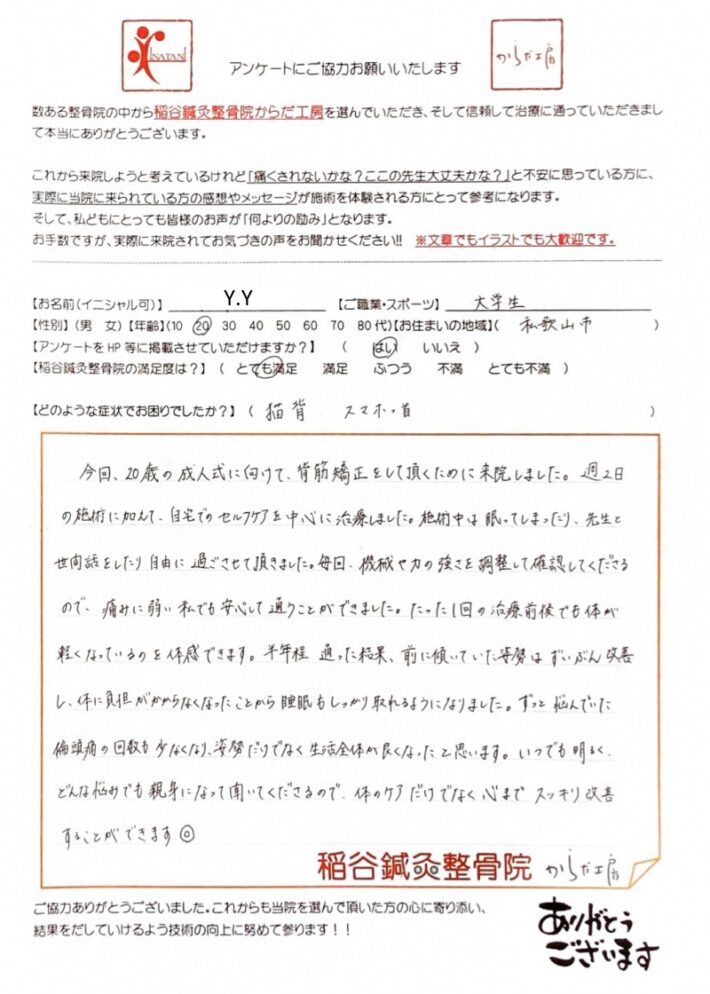 INATANI
アンケートにご協力お願いいたします
からだ工房
数ある整骨院の中から稲谷鍼灸整骨院からだ工房を選んでいただき、そして信頼して治療に通っていただきまし
て本当にありがとうございます。
これから来院しようと考えているけれど「痛くされないかな？ここの先生大丈夫かな？」と不安に思っている方に、
実際に当院に来られている方の感想やメッセージが施術を体験される方にとって参考になります。
そして、私どもにとっても皆様のお声が「何よりの励み」となります。
お手数ですが、実際に来院されてお気づきの声をお聞かせください!! ※文章でもイラストでも大歓迎です。
【お名前(イニシャル可)】 Y.Y 【ご職業・スポーツ】 大学生
【性別】(男 女)【年齢】(10 20 30 40 50 60 70 80代)【お住まいの地域】( 和歌山市 )
【アンケートをHP等に掲載させていただけますか？】 ( はい いいえ )
【稲谷鍼灸整骨院の満足度は？】 ( とても満足 満足 ふつう 不満 とても不満 )
【どのような症状でお困りでしたか？】 ( 猫背 スマホ・首 )
今回、20歳の成人式に向けて、背筋矯正をして頂くために来院しました。週2日
の施術に加えて、自宅でのセルフケアを中心に治療しました。施術中は眠ってしまったり、先生と
世間話をしたり自由に過ごさせて頂きました。毎回、機械や力の強さを調整して確認してくださる
ので、痛みに弱い私でも安心して通うことができました。たった1回の治療前後でも体が
軽くなっているのを体感できます。半年程通った結果、前に傾いていた姿勢はずいぶん改善
し、体に負担がかからなくなったことから睡眠もしっかり取れるようになりました。ずっと悩んでいた
偏頭痛の回数も少なくなり、姿勢だけでなく生活全体が良くなったと思います。いつでも明るく、
どんな悩みでも親身になって聞いてくださるので、体のケアだけでなく心までスッキリ改善
することができます◎
稲谷鍼灸整骨院 からだ工房
ご協力ありがとうございました。これからも当院を選んで頂いた方の心に寄り添い、
結果をだしていけるよう技術の向上に努めて参ります！！
ありがとう
ございます